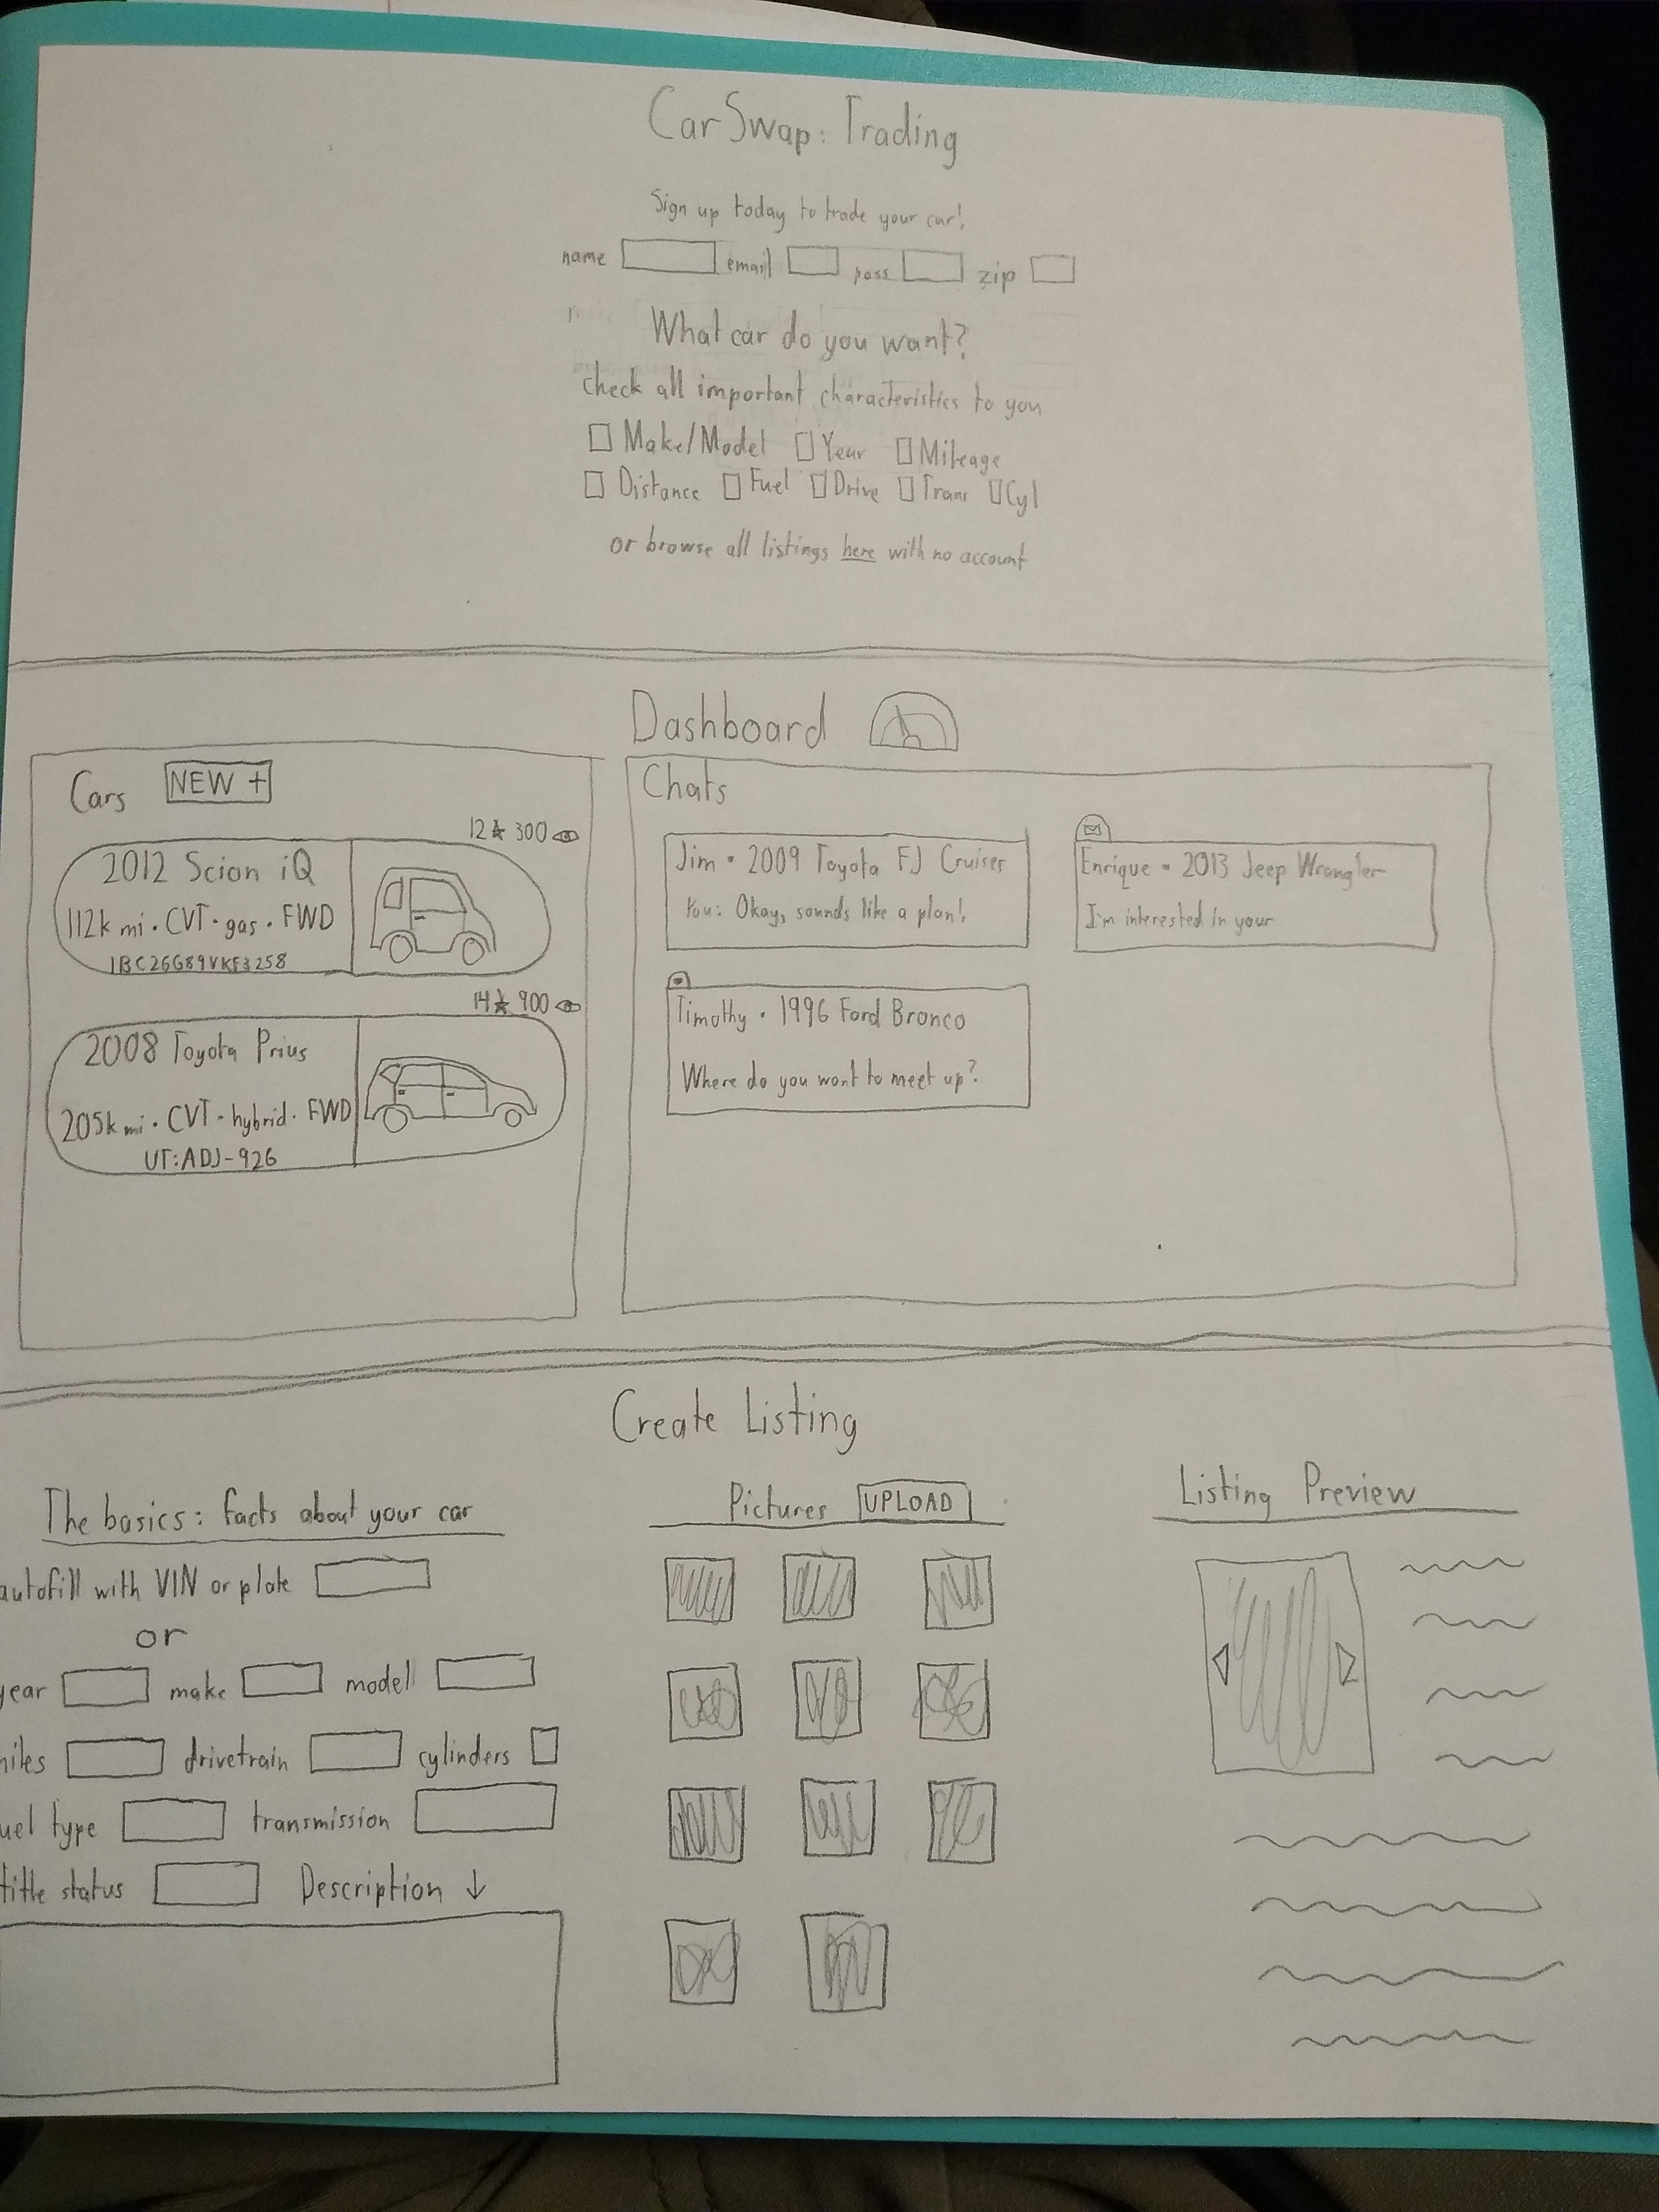 Car Swap: Trading
Sign up today to trade your car!
name email pass zip
What car do you want?
check all important characteristics to you
Make/Model Year Mileage
Distance Fuel Drive Trans Cyl
or browse all listings here with no account
Dashboard
Cars NEW +
12 300
2012 Scion iQ
112k mi • CVT • gas • FWD
1BC26G89VKF3258
14 900
2008 Toyota Prius
205k mi • CVT • hybrid • FWD
UT:ADJ-926
Chats
Jim • 2009 Toyota FJ Cruiser
You: Okay, sounds like a plan!
Enrique • 2013 Jeep Wrangler
I'm interested in your
Timothy • 1996 Ford Bronco
Where do you want to meet up?
Create Listing
The basics: facts about your car
autofill with VIN or plate
or
year make model
miles drivetrain cylinders
uel type transmission
title status Description ↓
Pictures UPLOAD
Listing Preview